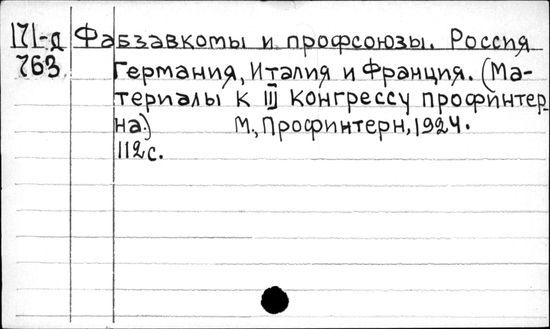 171-д Фабзавкомы и профсоюзы. Россия
763 Германия, Италия и Франция. (Ма-
териалы к III конгрессу профинтер-
на.) М., Профинтерн, 1924.
112 с.